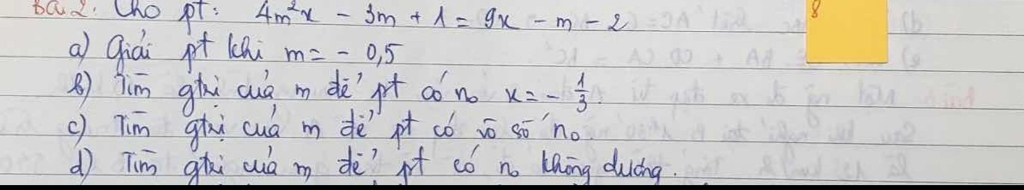 Bài 2. Cho pt: 4m²x - 3m + 1 = 9x - m - 2
a) Giải pt khi m = - 0,5
b) Tìm gtrị của m để pt có no x = - 1/3.
c) Tìm gtrị của m để pt có vô số no
d) Tìm gtrị của m để pt có no không dương.
8